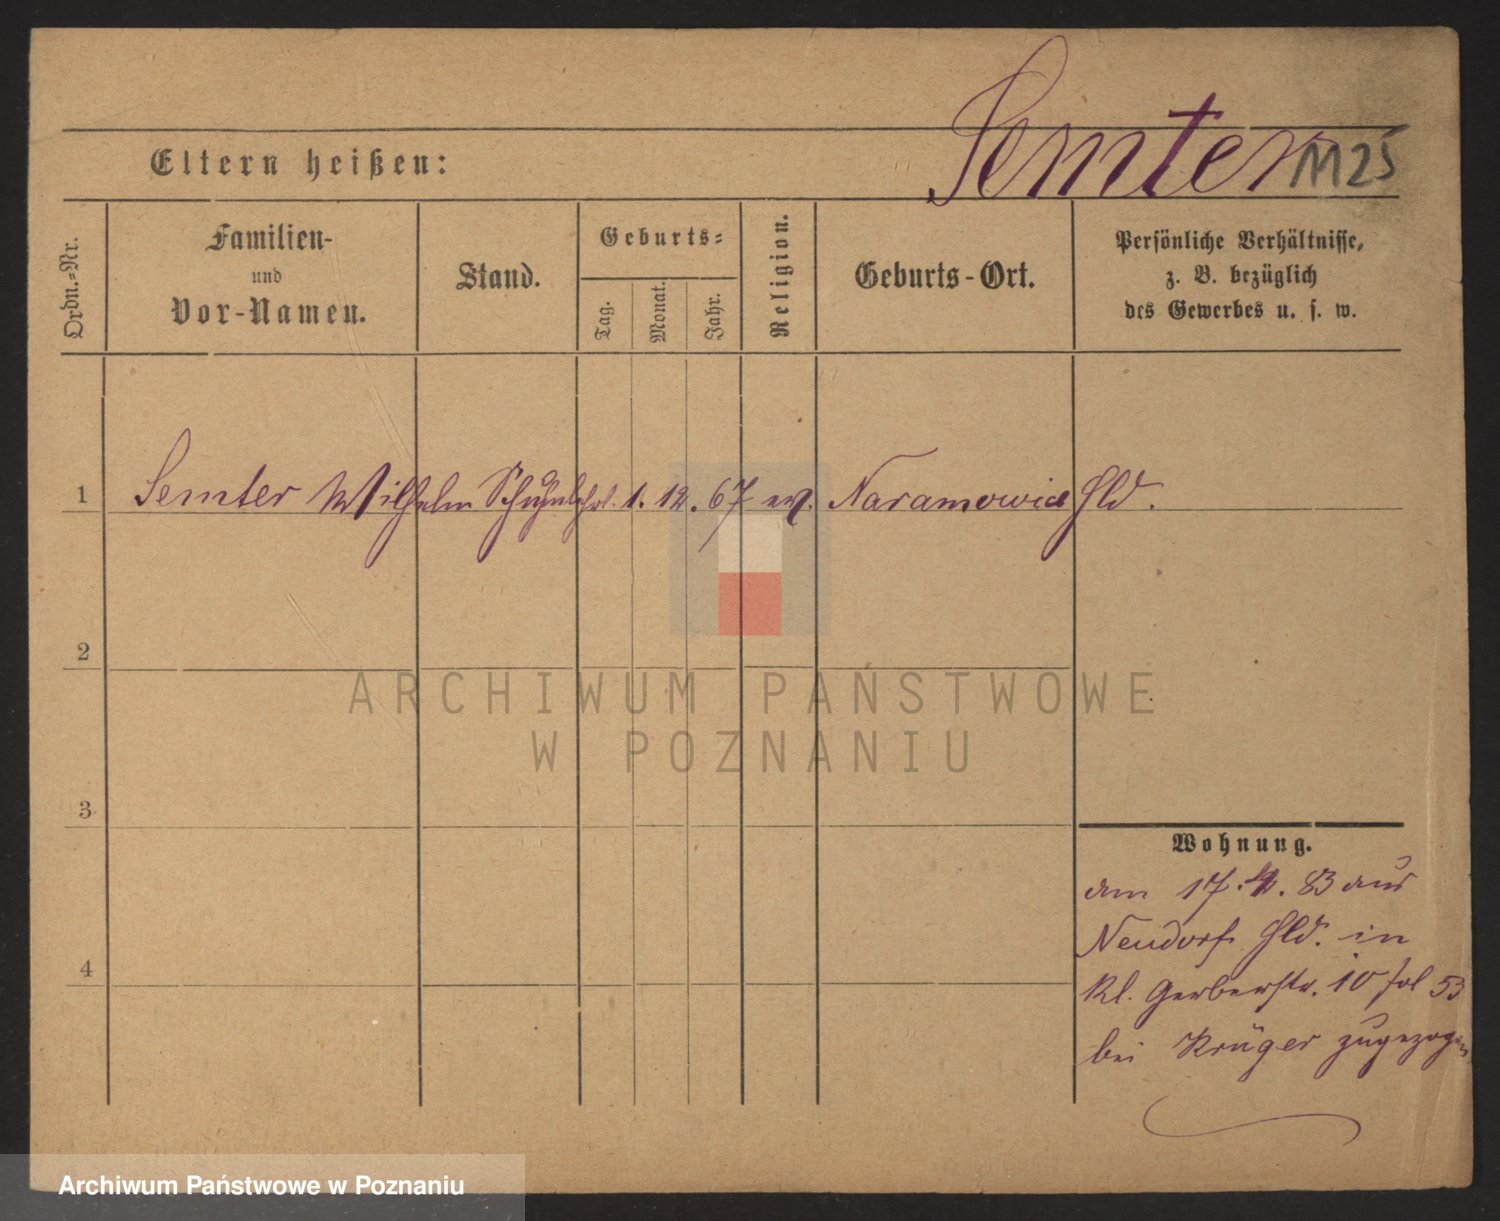 Semter 1125
Eltern heißen:
Ordn.-Nr.
Familien-
und
Vor-Namen.
Stand.
Geburts-
Tag.
Monat.
Jahr.
Religion.
Geburts-Ort.
Persönliche Verhältnisse,
z. B. bezüglich
des Gewerbes u. s. w.
1 Semter Wilhelm Schuhmlehrl. 1. 12. 67 ev. Naramowice Hld.
2
3
4
Wohnung.
am 17. 4. 83 aus
Neudorf Hld. in
Kl. Gerberstr. 10 fol 53
bei Krüger zugezogen
ARCHIWUM PAŃSTWOWE
W POZNANIU
Archiwum Państwowe w Poznaniu